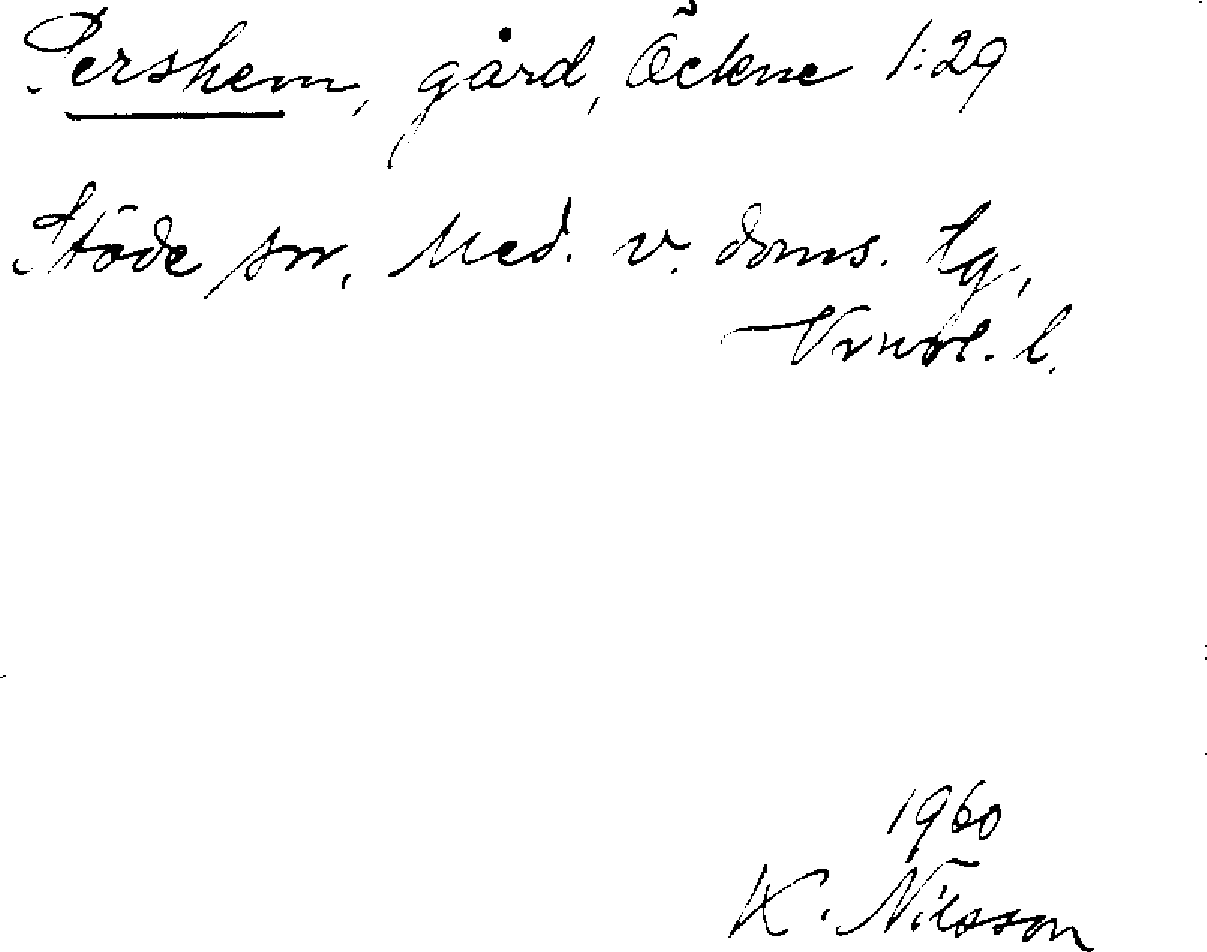 Pershem, gård, Öckne 1:29
Stöde sn, Med. v. doms. tg,
Vrnrl. l.
1960
K. Nilsson